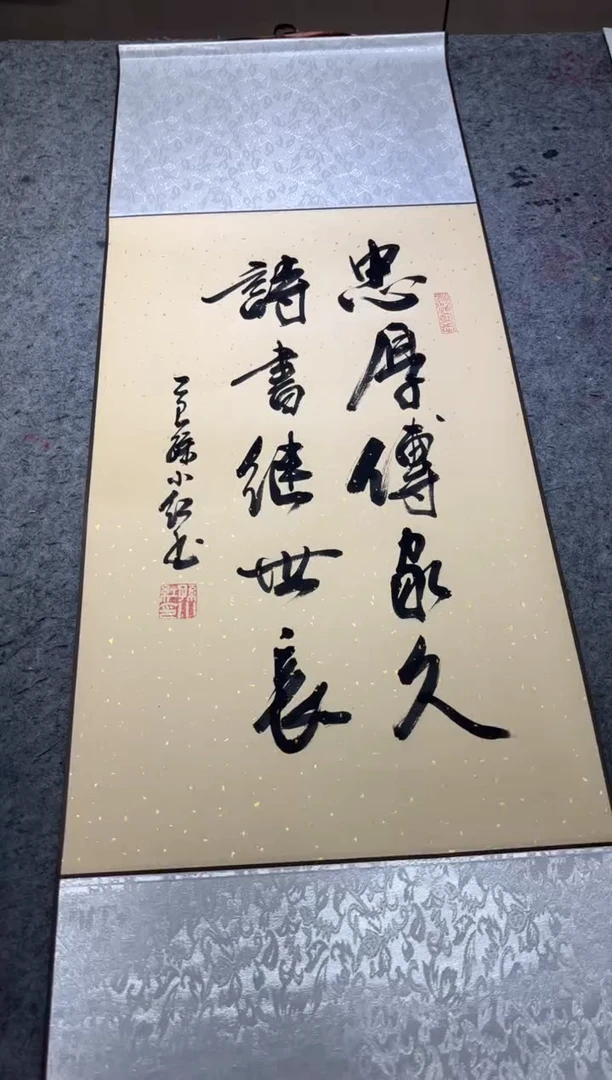 忠厚傳家久
詩書继世長
孫小红書